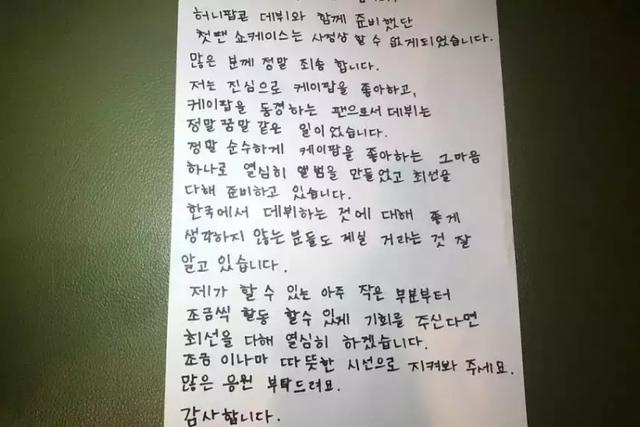 허니팝콘 데뷔와 함께 준비했단
첫팬 쇼케이스는 사정상 할 수 없게되었습니다.
많은 분께 정말 죄송 합니다.
저는 진심으로 케이팝을 좋아하고,
케이팝을 동경하는 팬으로서 데뷔는
정말 꿈말 같은 일이었습니다.
정말 순수하게 케이팝을 좋아하는 그마음
하나로 열심히 앨범을 만들었고 최선을
다해 준비하고 있습니다.
한국에서 데뷔하는 것에 대해 좋게
생각하지 않는 분들도 계실 거라는 것 잘
알고 있습니다.
제가 할 수 있는 아주 작은 부분부터
조금씩 활동 할수 있게 기회를 주신다면
최선을 다해 열심히 하겠습니다.
조금 이나마 따뜻한 시선으로 지켜봐 주세요.
많은 응원 부탁드려요.
감사합니다.